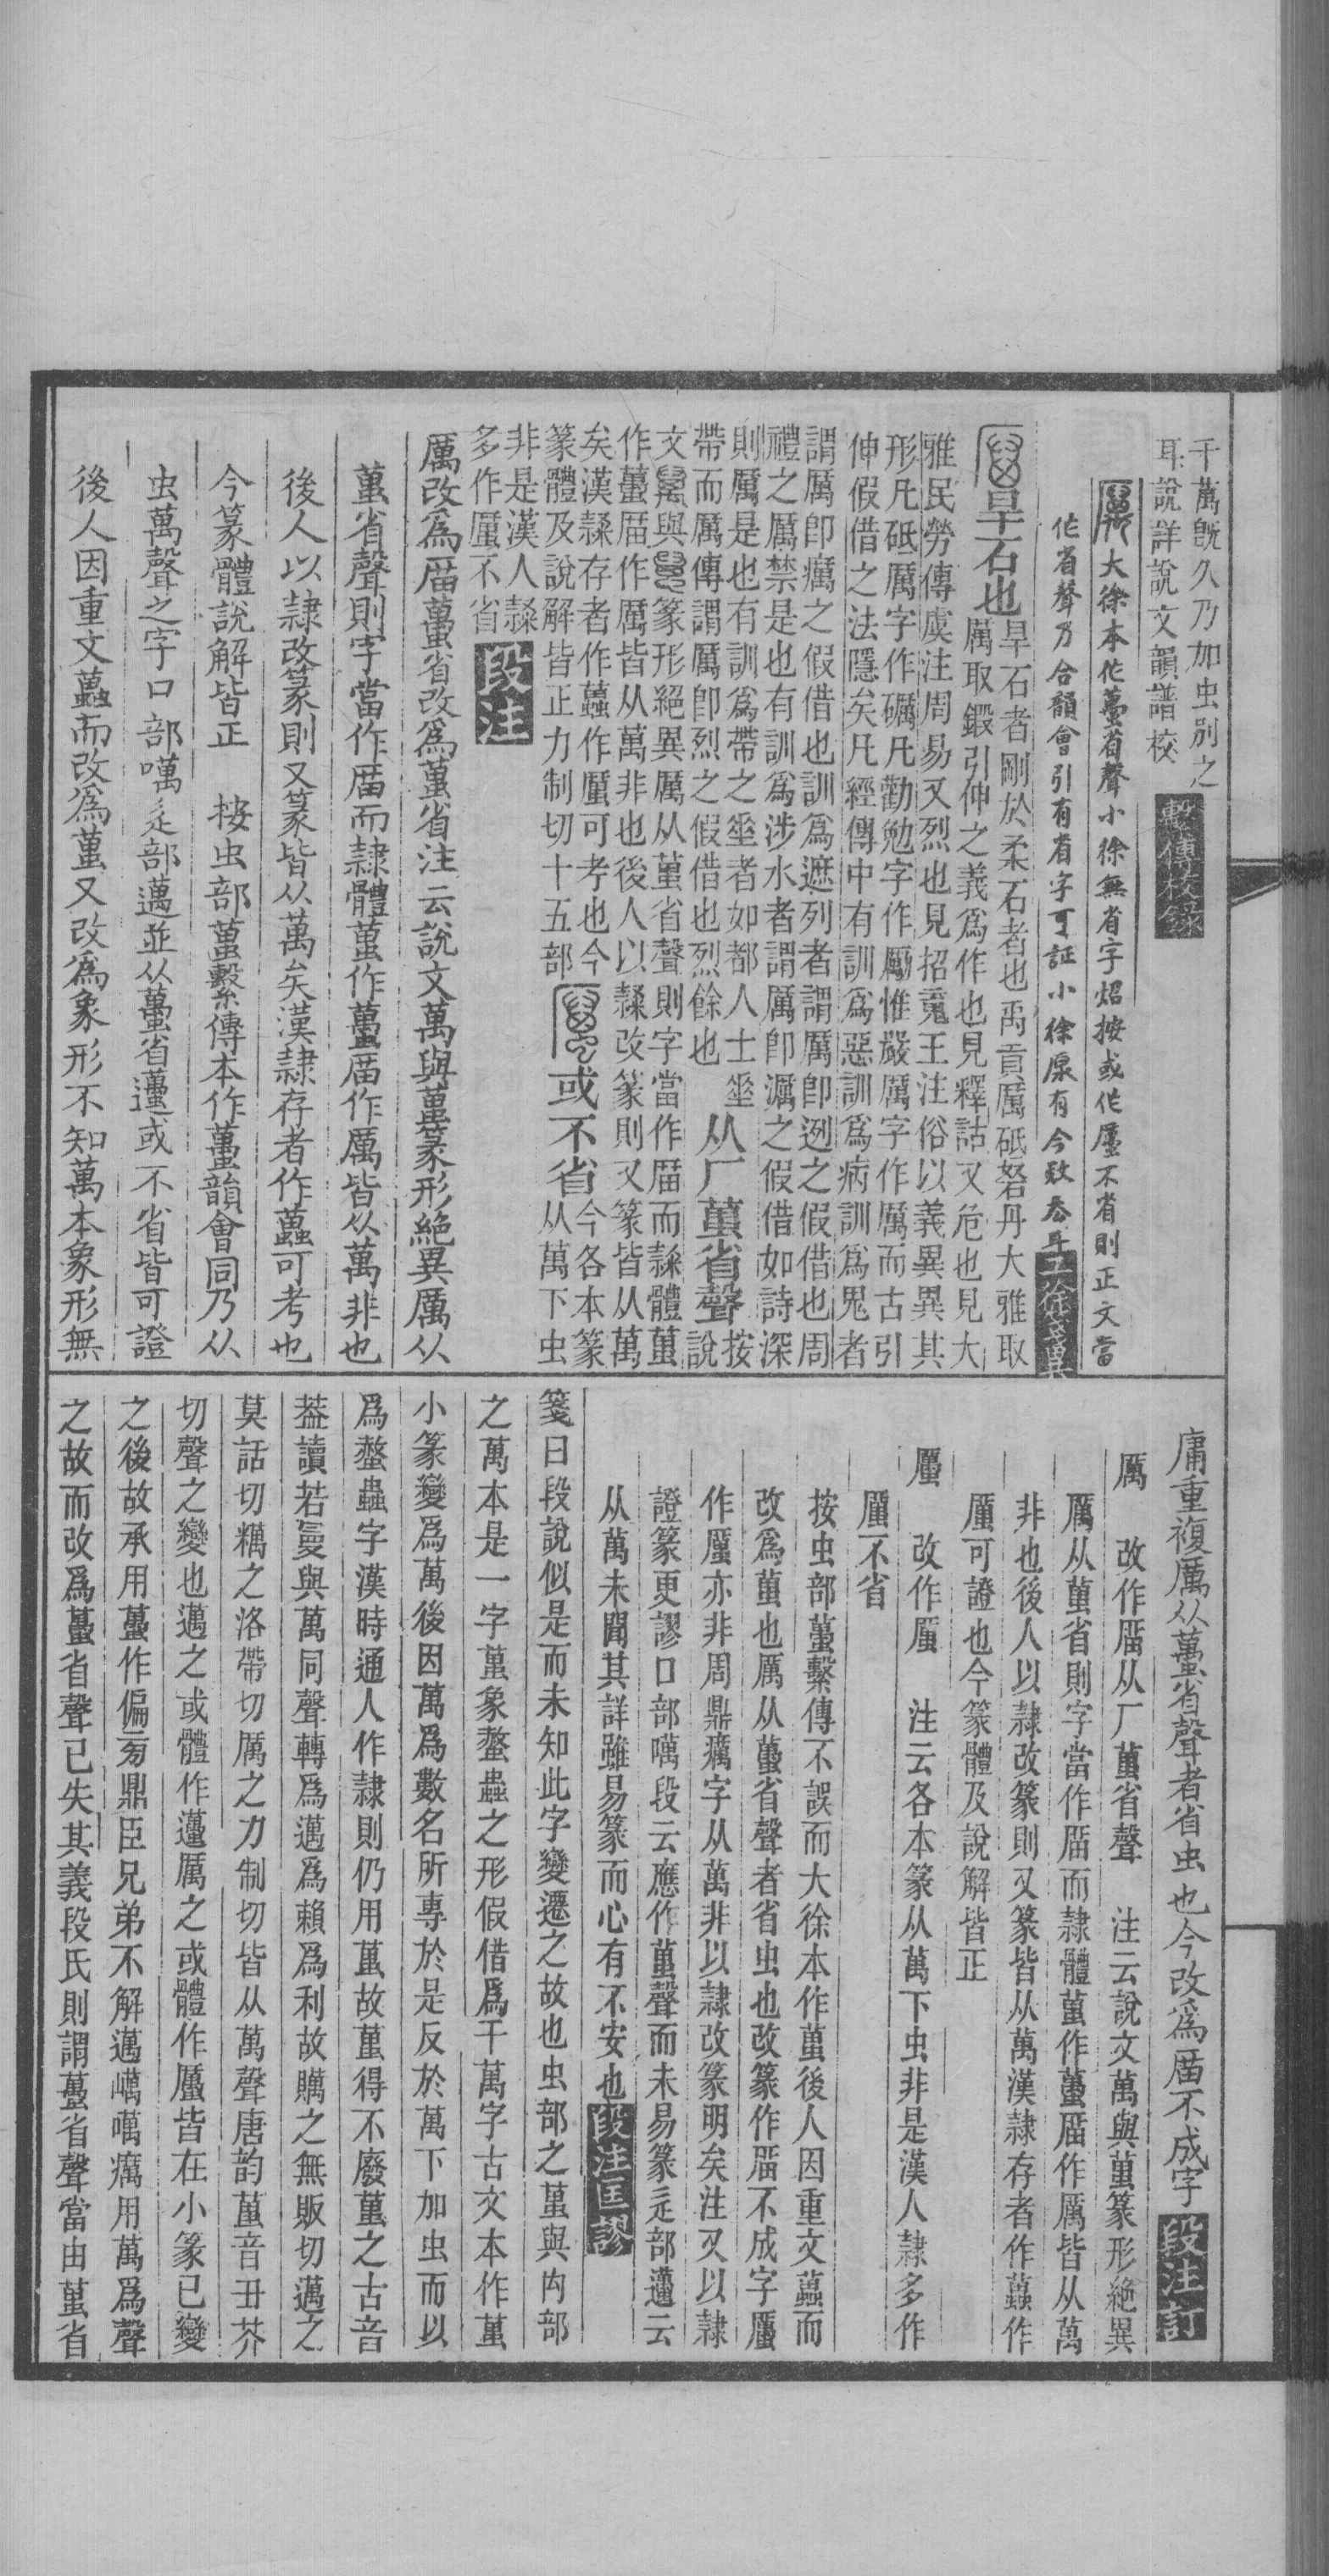 千萬旣久乃加虫別之
耳說詳說文韻譜校 繫傳校錄
大徐本作蠆省聲小徐無省字炤按或作厲不省則正文當
作省聲乃合韻會引有省字可証小徐原有今致叅耳
旱石也旱石者剛於柔石者也禹貢厲砥砮丹大雅取
厲取鍛引伸之義爲作也見釋詁又危也見大
雅民勞傳虞注周易又烈也見招䰟王注俗以義異異其
形凡砥厲字作礪凡勸勉字作勵惟嚴厲字作厲而古引
伸假借之法隱矣凡經傳中有訓爲惡訓爲病訓爲鬼者
謂厲卽癘之假借也訓爲遮列者謂厲卽迾之假借也周
禮之厲禁是也有訓爲涉水者謂厲卽濿之假借如詩深
則厲是也有訓爲帶之垂者如都人士垂
帶而厲傳謂厲卽烈之假借也烈餘也 从厂蠆省聲 按說
文與篆形絕異厲从蠆省聲則字當作厲而隸體蠆
作蠆厲作厲皆从萬非也後人以隸改篆則又篆皆从萬
矣漢隸存者作蠆作厲可考也今
篆體及說解皆正力制切十五部 或不省 今各本篆从萬下虫
非是漢人隸
多作厲不省 段注
厲改爲厲蠆省改爲蠆省注云說文萬與蠆篆形絕異厲从
蠆省聲則字當作厲而隸體蠆作蠆厲作厲皆从萬非也
後人以隸改篆則又篆皆从萬矣漢隸存者作蠆可考也
今篆體說解皆正 按虫部蠆繫傳本作蠆韻會同乃从
虫萬聲之字口部噧辵部邁並从蠆省邁或不省皆可證
後人因重文蠆而改爲蠆又改爲象形不知萬本象形無
庸重複厲从蠆省聲者省虫也今改爲厲不成字 段注訂
厲 改作厲从厂蠆省聲 注云說文萬與蠆篆形絕異
厲从蠆省則字當作厲而隸體蠆作蠆厲作厲皆从萬
非也後人以隸改篆則又篆皆从萬漢隸存者作蠆作
厲可證也今篆體及說解皆正
厲 改作厲 注云各本篆从萬下虫非是漢人隸多作
厲不省
按虫部蠆繫傳不誤而大徐本作蠆後人因重文蠆而
改爲蠆也厲从蠆省聲者省虫也改篆作厲不成字厲
作厲亦非周鼎癘字从萬非以隸改篆明矣注又以隸
證篆更謬口部噧段云應作蠆聲而未易篆辵部邁云
从萬未聞其詳雖易篆而心有不安也 段注匡謬
箋曰段說似是而未知此字變遷之故也虫部之蠆與禸部
之萬本是一字蠆象螫蟲之形假借爲千萬字古文本作萬
小篆變爲萬後因萬爲數名所專於是反於萬下加虫而以
爲螫蟲字漢時通人作隸則仍用蠆故蠆得不廢蠆之古音
葢讀若曼與萬同聲轉爲邁爲賴爲利故購之無販切邁之
莫話切糲之洛帶切厲之力制切皆从萬聲唐韵蠆音丑芥
切聲之變也邁之或體作邁厲之或體作厲皆在小篆已變
之後故承用蠆作偏㫄鼎臣兄弟不解邁巁噧癘用萬爲聲
之故而改爲蠆省聲已失其義段氏則謂蠆省聲當由蠆省